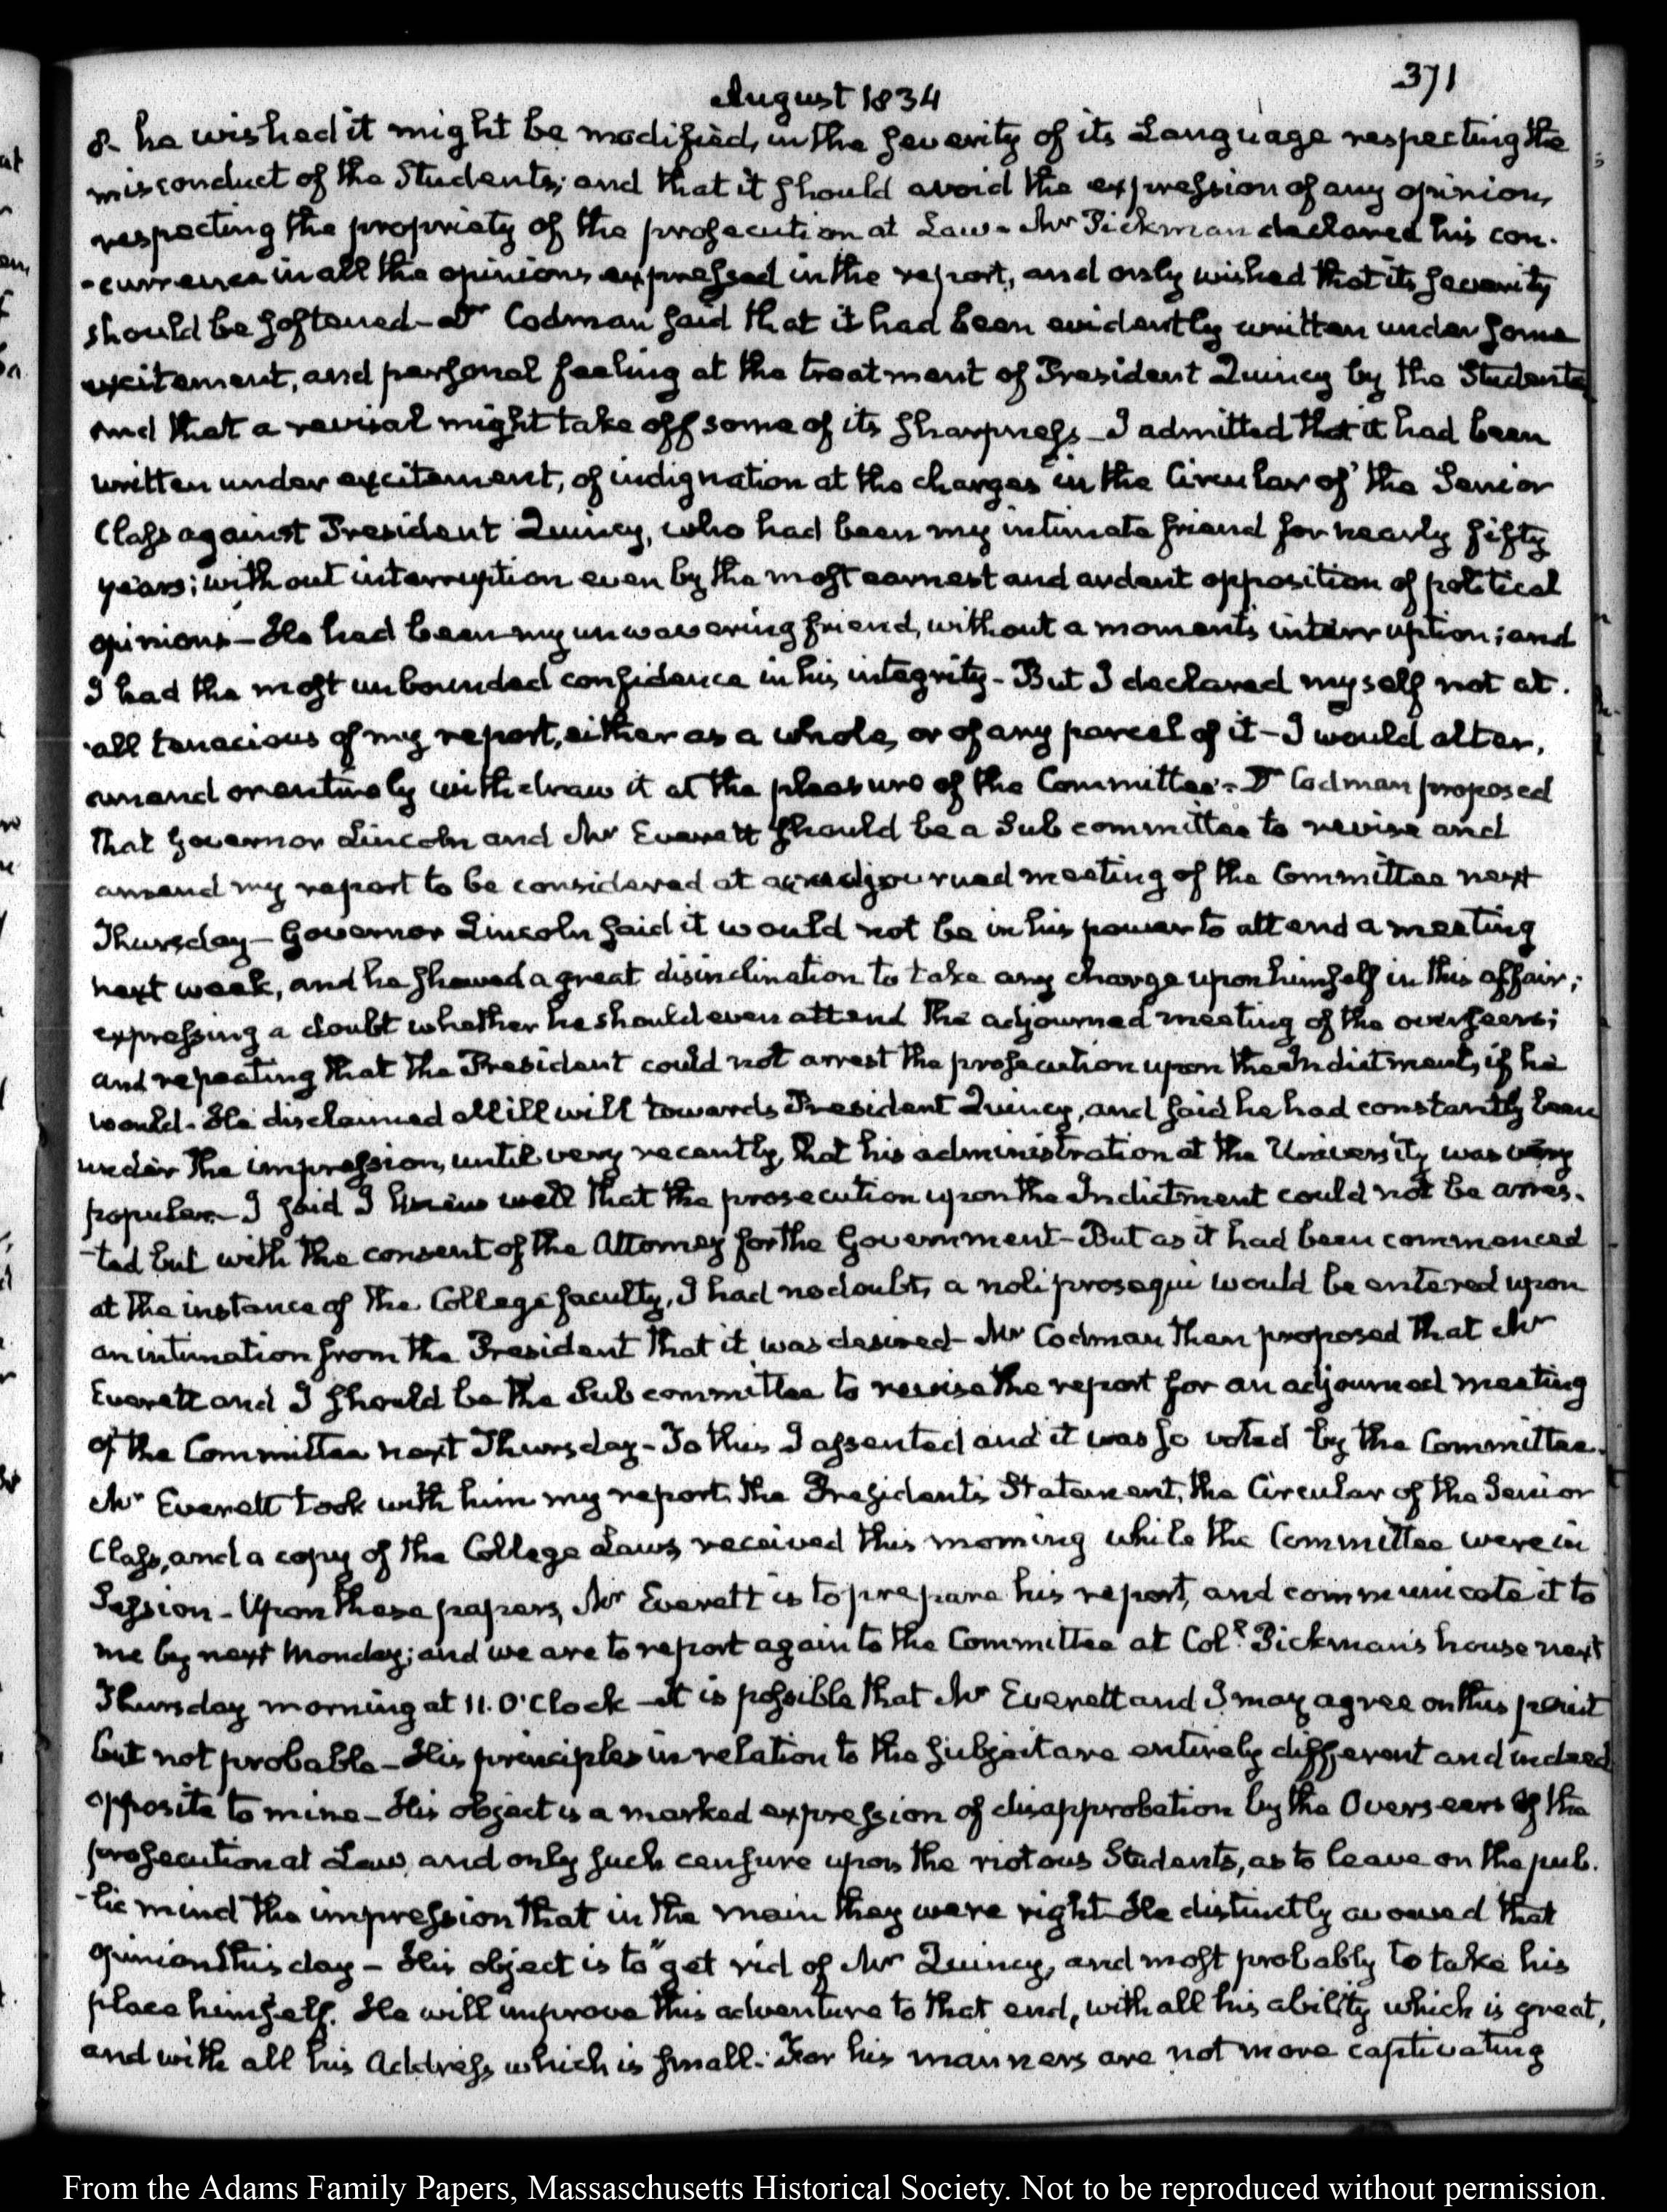 371
August 1834
& he wished it might be modified, in the severity of its Language respecting the
misconduct of the Students; and that it should avoid the expression of any opinion,
respecting the propriety of the prosecution at Law. Mr Pickman declared his con-
-currence in all the opinions expressed in the report, and only wished that its severity
should be softened - Dr Codman said that it had been evidently written under some
excitement, and personal feeling at the treatment of President Quincy by the Students
and that a revisal might take off some of its sharpness - I admitted that it had been
written under excitement, of indignation at the charges in the Circular of the Senior
Class against President Quincy, who had been my intimate friend for nearly fifty
years; without interruption even by the most earnest and ardent opposition of political
opinions - He had been my unwavering friend, without a moment's interruption; and
I had the most unbounded confidence in his integrity - But I declared myself not at
all tenacious of my report, either as a whole, or of any parcel of it - I would alter,
amend or entirely withdraw it at the pleasure of the Committee - Dr Codman proposed
that Governor Lincoln and Mr Everett should be a Sub committee to revise and
amend my report to be considered at an adjourned meeting of the Committee next
Thursday - Governor Lincoln said it would not be in his power to attend a meeting
next week, and he showed a great disinclination to take any charge upon himself in this affair;
expressing a doubt whether he should even attend the adjourned meeting of the overseers;
and repeating that the President could not arrest the prosecution upon the Indictments, if he
would. He disclaimed all ill will towards President Quincy, and said he had constantly been
under the impression, until very recently, that his administration at the University was very
popular - I said I knew well that the prosecution upon the Indictment could not be arres-
-ted but with the consent of the Attorney for the Government - But as it had been commenced
at the instance of the College faculty, I had no doubt, a noli prosequi would be entered upon
an intimation from the President that it was desired - Mr Codman then proposed that Mr
Everett and I should be the Sub committee to revise the report for an adjourned meeting
of the Committee next Thursday - To this I assented and it was so voted by the Committee.
Mr Everett took with him my report, the President's Statement, the Circular of the Senior
Class, and a copy of the College Laws received this morning while the Committee were in
Session - Upon these papers, Mr Everett is to prepare his report, and communicate it to
me by next Monday; and we are to report again to the Committee at Colr. Pickman's house next
Thursday morning at 11. O'Clock - It is possible that Mr Everett and I may agree on this point
but not probable - His principles in relation to the subject are entirely different and indeed
opposite to mine - His object is a marked expression of disapprobation by the Overseers of the
prosecution at Law, and only such censure upon the riotous Students, as to leave on the pub-
-lic mind the impression that in the main they were right. He distinctly avowed that
opinion this day - His object is to get rid of Mr Quincy, and most probably to take his
place himself. He will improve this adventure to that end, with all his ability which is great,
and with all his Address which is small. For his manners are not more captivating
From the Adams Family Papers, Massachusetts Historical Society. Not to be reproduced without permission.